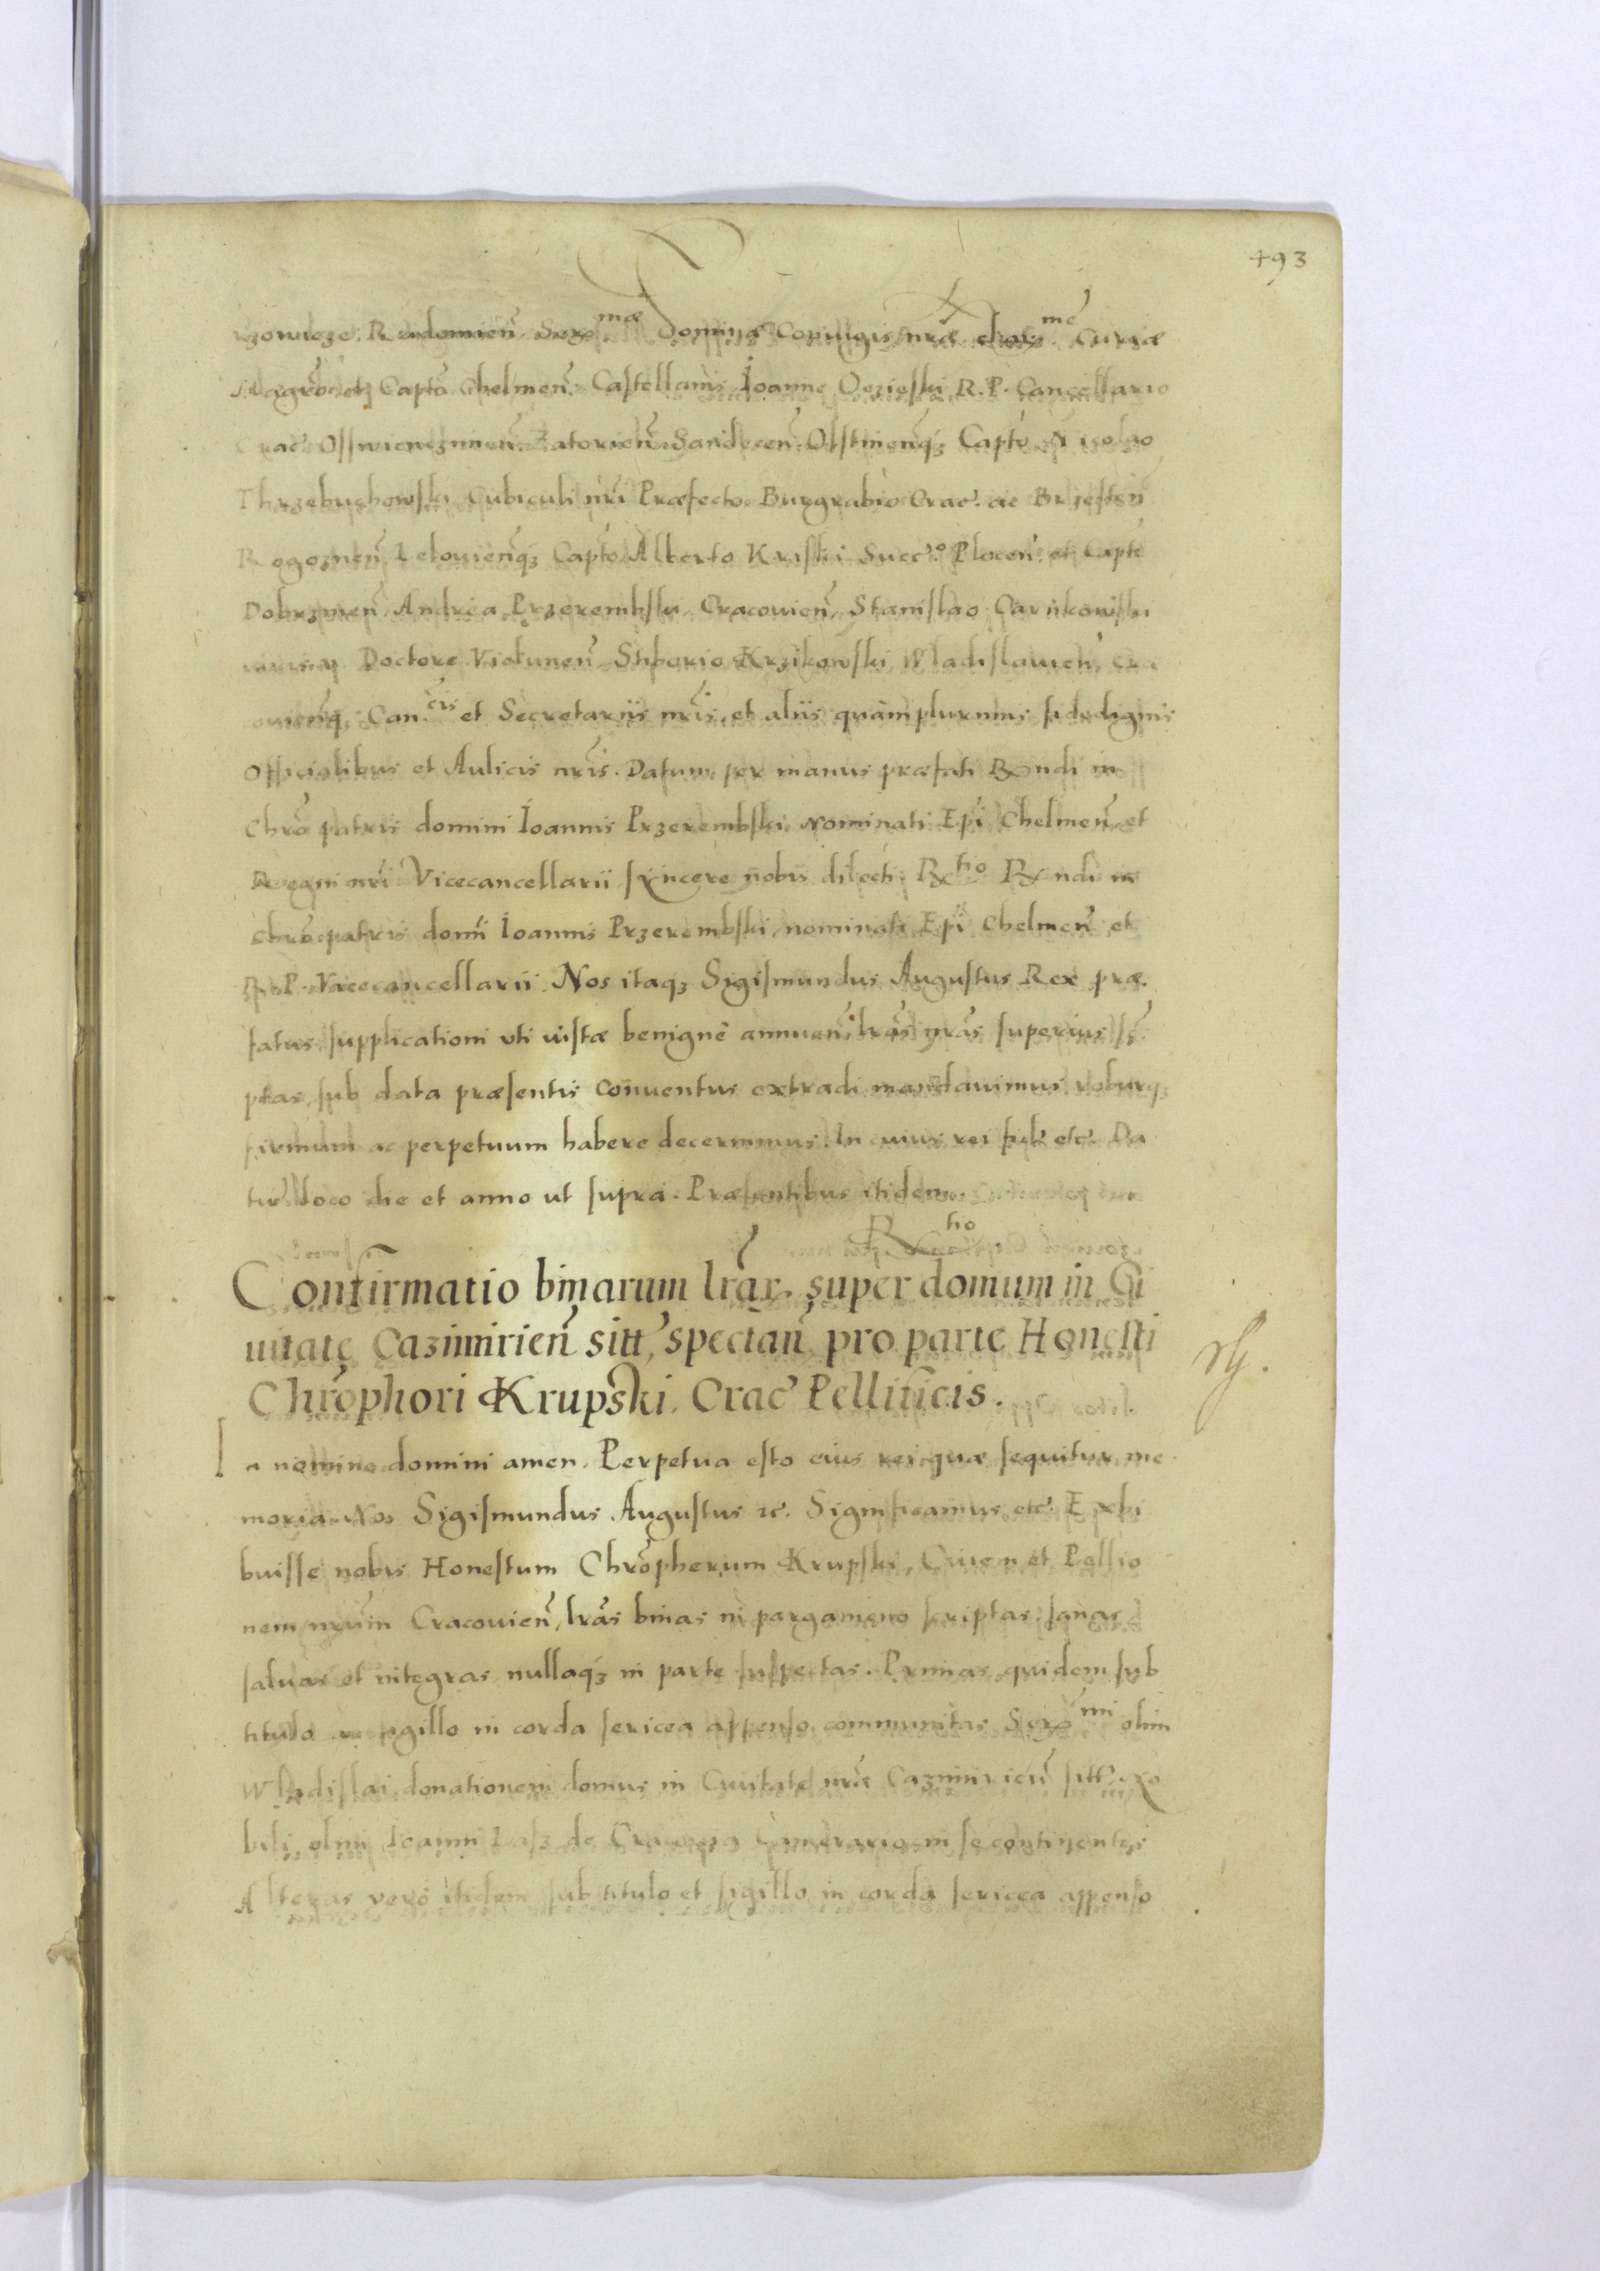 493
Radomien̄. Ser.mæ Dominæ Coniugis nr̄æ char.me Curiæ
Magr̄o et Capt̄o Chelmen̄. Castellanis Ioanne Oczieski R. P. Cancellario
Crac̄. Osswienczimen̄. Zatorien̄. Sandecen̄. Olstinen̄q3 Capt̄o. Nicolao
Thrzebuchowski Cubiculi nr̄i Præfecto Burgrabio Crac̄. ac Brzesten̄
Rogoznen̄ Lelouien̄q3 Capt̄o Alberto Kriski Succ.o Plocen̄. et Capt̄o
Dobrzinen̄. Andrea Przerembski, Cracouien̄, Stanislao Carnkowski
Doctore Vielunen̄. Stiborio Krzikowski Wladislauien̄, Cra
ouien̄q3 Can.cis et Secretariis nr̄is, et aliis quàm plurimis fidedignis
Officialibus et Aulicis nr̄is. Datum per manus præfati Rndi in
Chro patris domini Ioannis Przerembski Nominati Epī Chelmen̄ et
Regni nr̄i Vicecancellarii syncere nobis dilecti. R̄tio Rndi in
Chro patris domī Ioannis Przerembski nominati Epī Chelmen̄ et
R. P. Vicecancellarii. Nos itaq3 Sigismundus Augustus Rex præ
fatus supplicationi uti iustæ benignè annuen̄. lr̄as nr̄as superius sc̄
ptas, sub data præsentis Conuentus extradi mandauimus roburq3
firmum ac perpetuum habere decernimus. In cuius rei fid̄ etc̄. Da
tū loco die et anno ut supra. Præsentibus itidem.
R̄tio
Confirmatio binarum lr̄ar. super domum in Ci
uitate Cazimirien̄ sitt̄, spectan̄ pro parte Honesti
Chrōphori Krupski. Crac̄ Pellificis.
In nomine domini amen. Perpetua esto eius rei quæ sequitur me
moria. Nos Sigismundus Augustus etc̄. Significamus etc̄. Exhi
buisse nobis Honestum Chrōpherum Krupski, Ciuem et Pellio
nem nr̄um Cracouien̄, lr̄as binas in pargameno scriptas sanas
saluas et integras nullaq3 in parte suspectas. Primas quidem sub
titulo ac sigillo in corda sericea appenso communitas Ser.mi olim
Wladislai donationem domus in Ciuitate nr̄a Cazimirien̄ sitt̄. No
bili olim Ioanni Lasz de Camerario in se continentes
Alteras verò itidem sub titulo et sigillo in corda sericea appenso